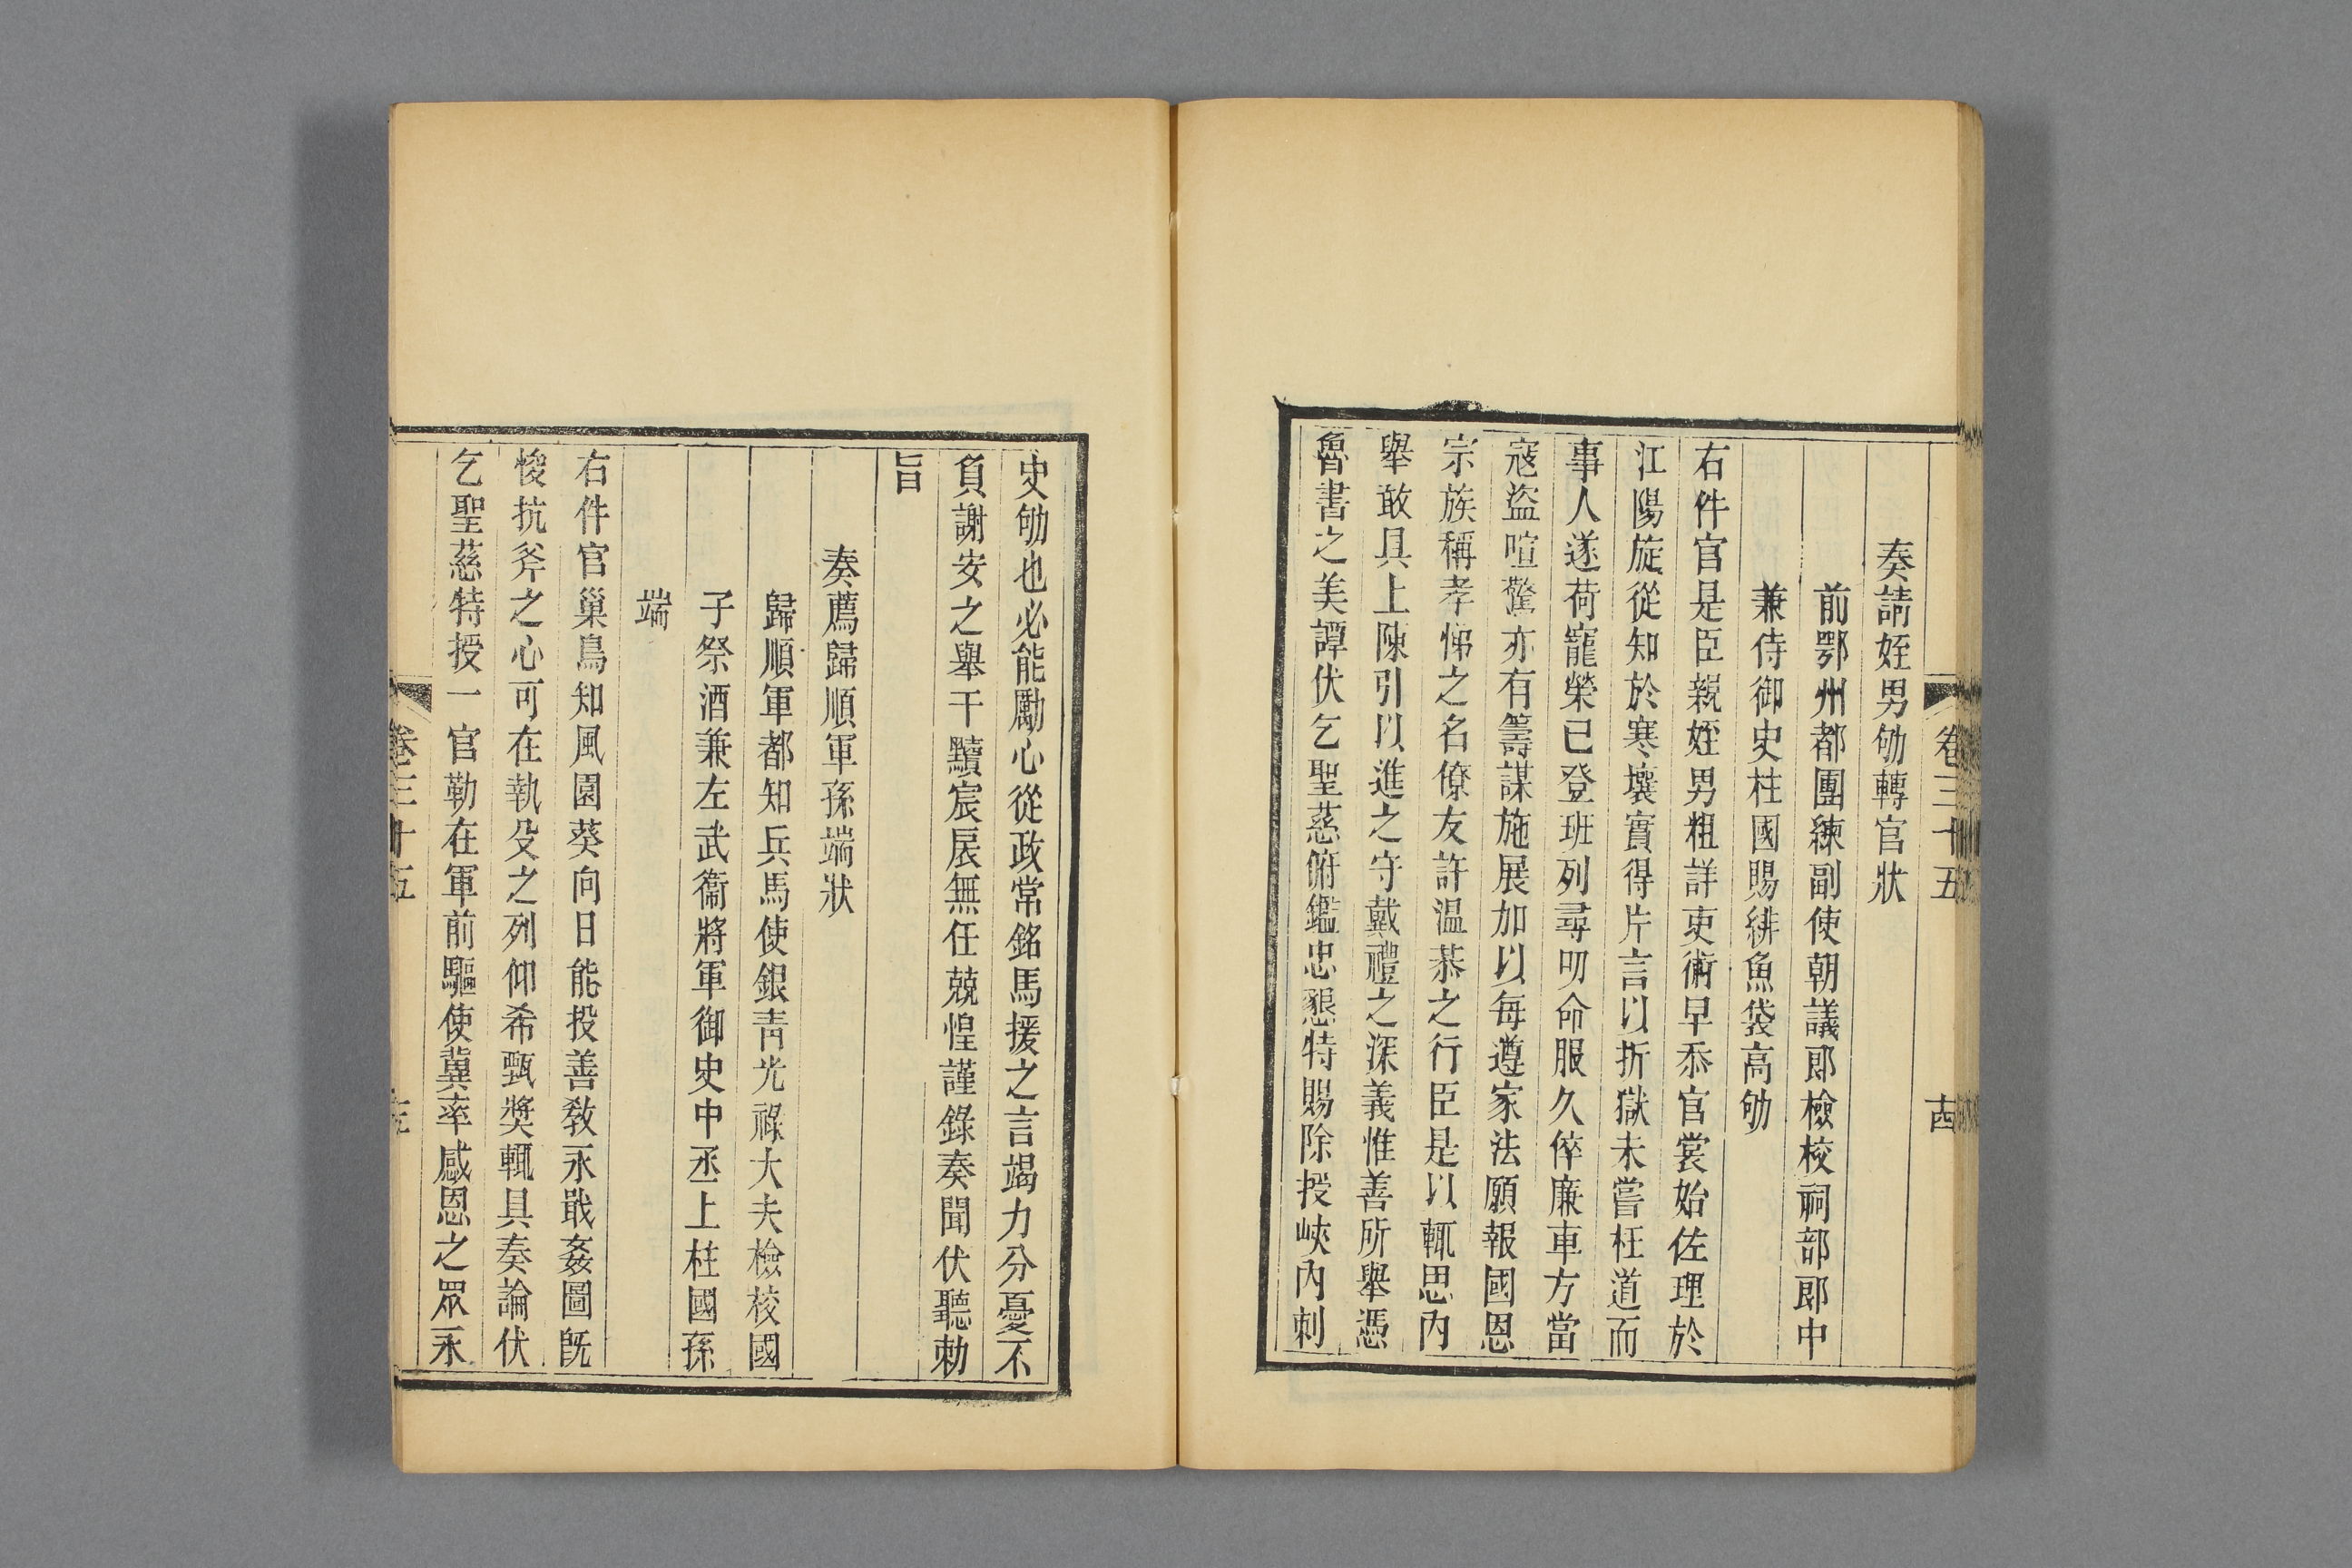 卷三十五
古
奏請姪男劬轉官狀
前鄂州都團練副使朝議郎檢校祠部郎中
兼侍御史柱國賜緋魚袋高劬
右件官是臣親姪男粗詳吏術早忝官裳始佐理於
江陽旋從知於寒壤實得片言以折獄未嘗枉道而
事人遂荷寵榮已登班列尋叨命服久倅廉車方當
寇盜喧驚亦有籌謀施展加以每遵家法願報國恩
宗族稱孝悌之名僚友許溫恭之行臣是以輒思內
舉敢具上陳引以進之守戴禮之深義惟善所舉憑
魯書之美譚伏乞聖慈俯鑑忠懇特賜除授峽內刺
史劬也必能勵心從政常銘馬援之言竭力分憂不
負謝安之舉干黷宸扆無任兢惶謹錄奏聞伏聽勅
旨
奏薦歸順軍孫端狀
歸順軍都知兵馬使銀青光祿大夫檢校國
子祭酒兼左武衞將軍御史中丞上柱國孫
端
右件官巢鳥知風園葵向日能投善教永戢姦圖旣
悛抗斧之心可在執殳之列仰希甄奬輒具奏論伏
乞聖慈特授一官勒在軍前驅使冀率感恩之眾永
卷三十五